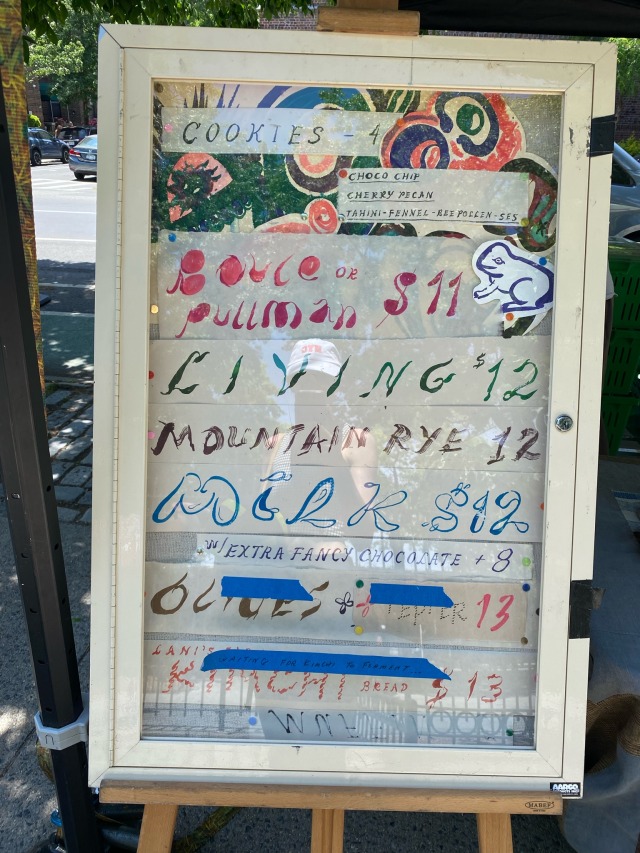 COOKIES - 4
CHOCO CHIP
CHERRY PECAN
TAHINI-FENNEL-BEE POLLEN-SES
BOULE OR
PULLMAN $11
LIVING $12
MOUNTAIN RYE 12
MILK $12
W/ EXTRA FANCY CHOCOLATE + 8
OLIVES & PEPPER 13
WAITING FOR KIMCHI TO FERMENT...
BREAD $13
AARCO
MABEF